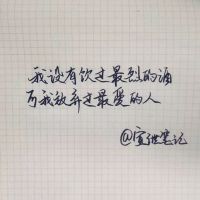 我没有饮过最烈的酒
可我放弃过最爱的人
@宣继笔记